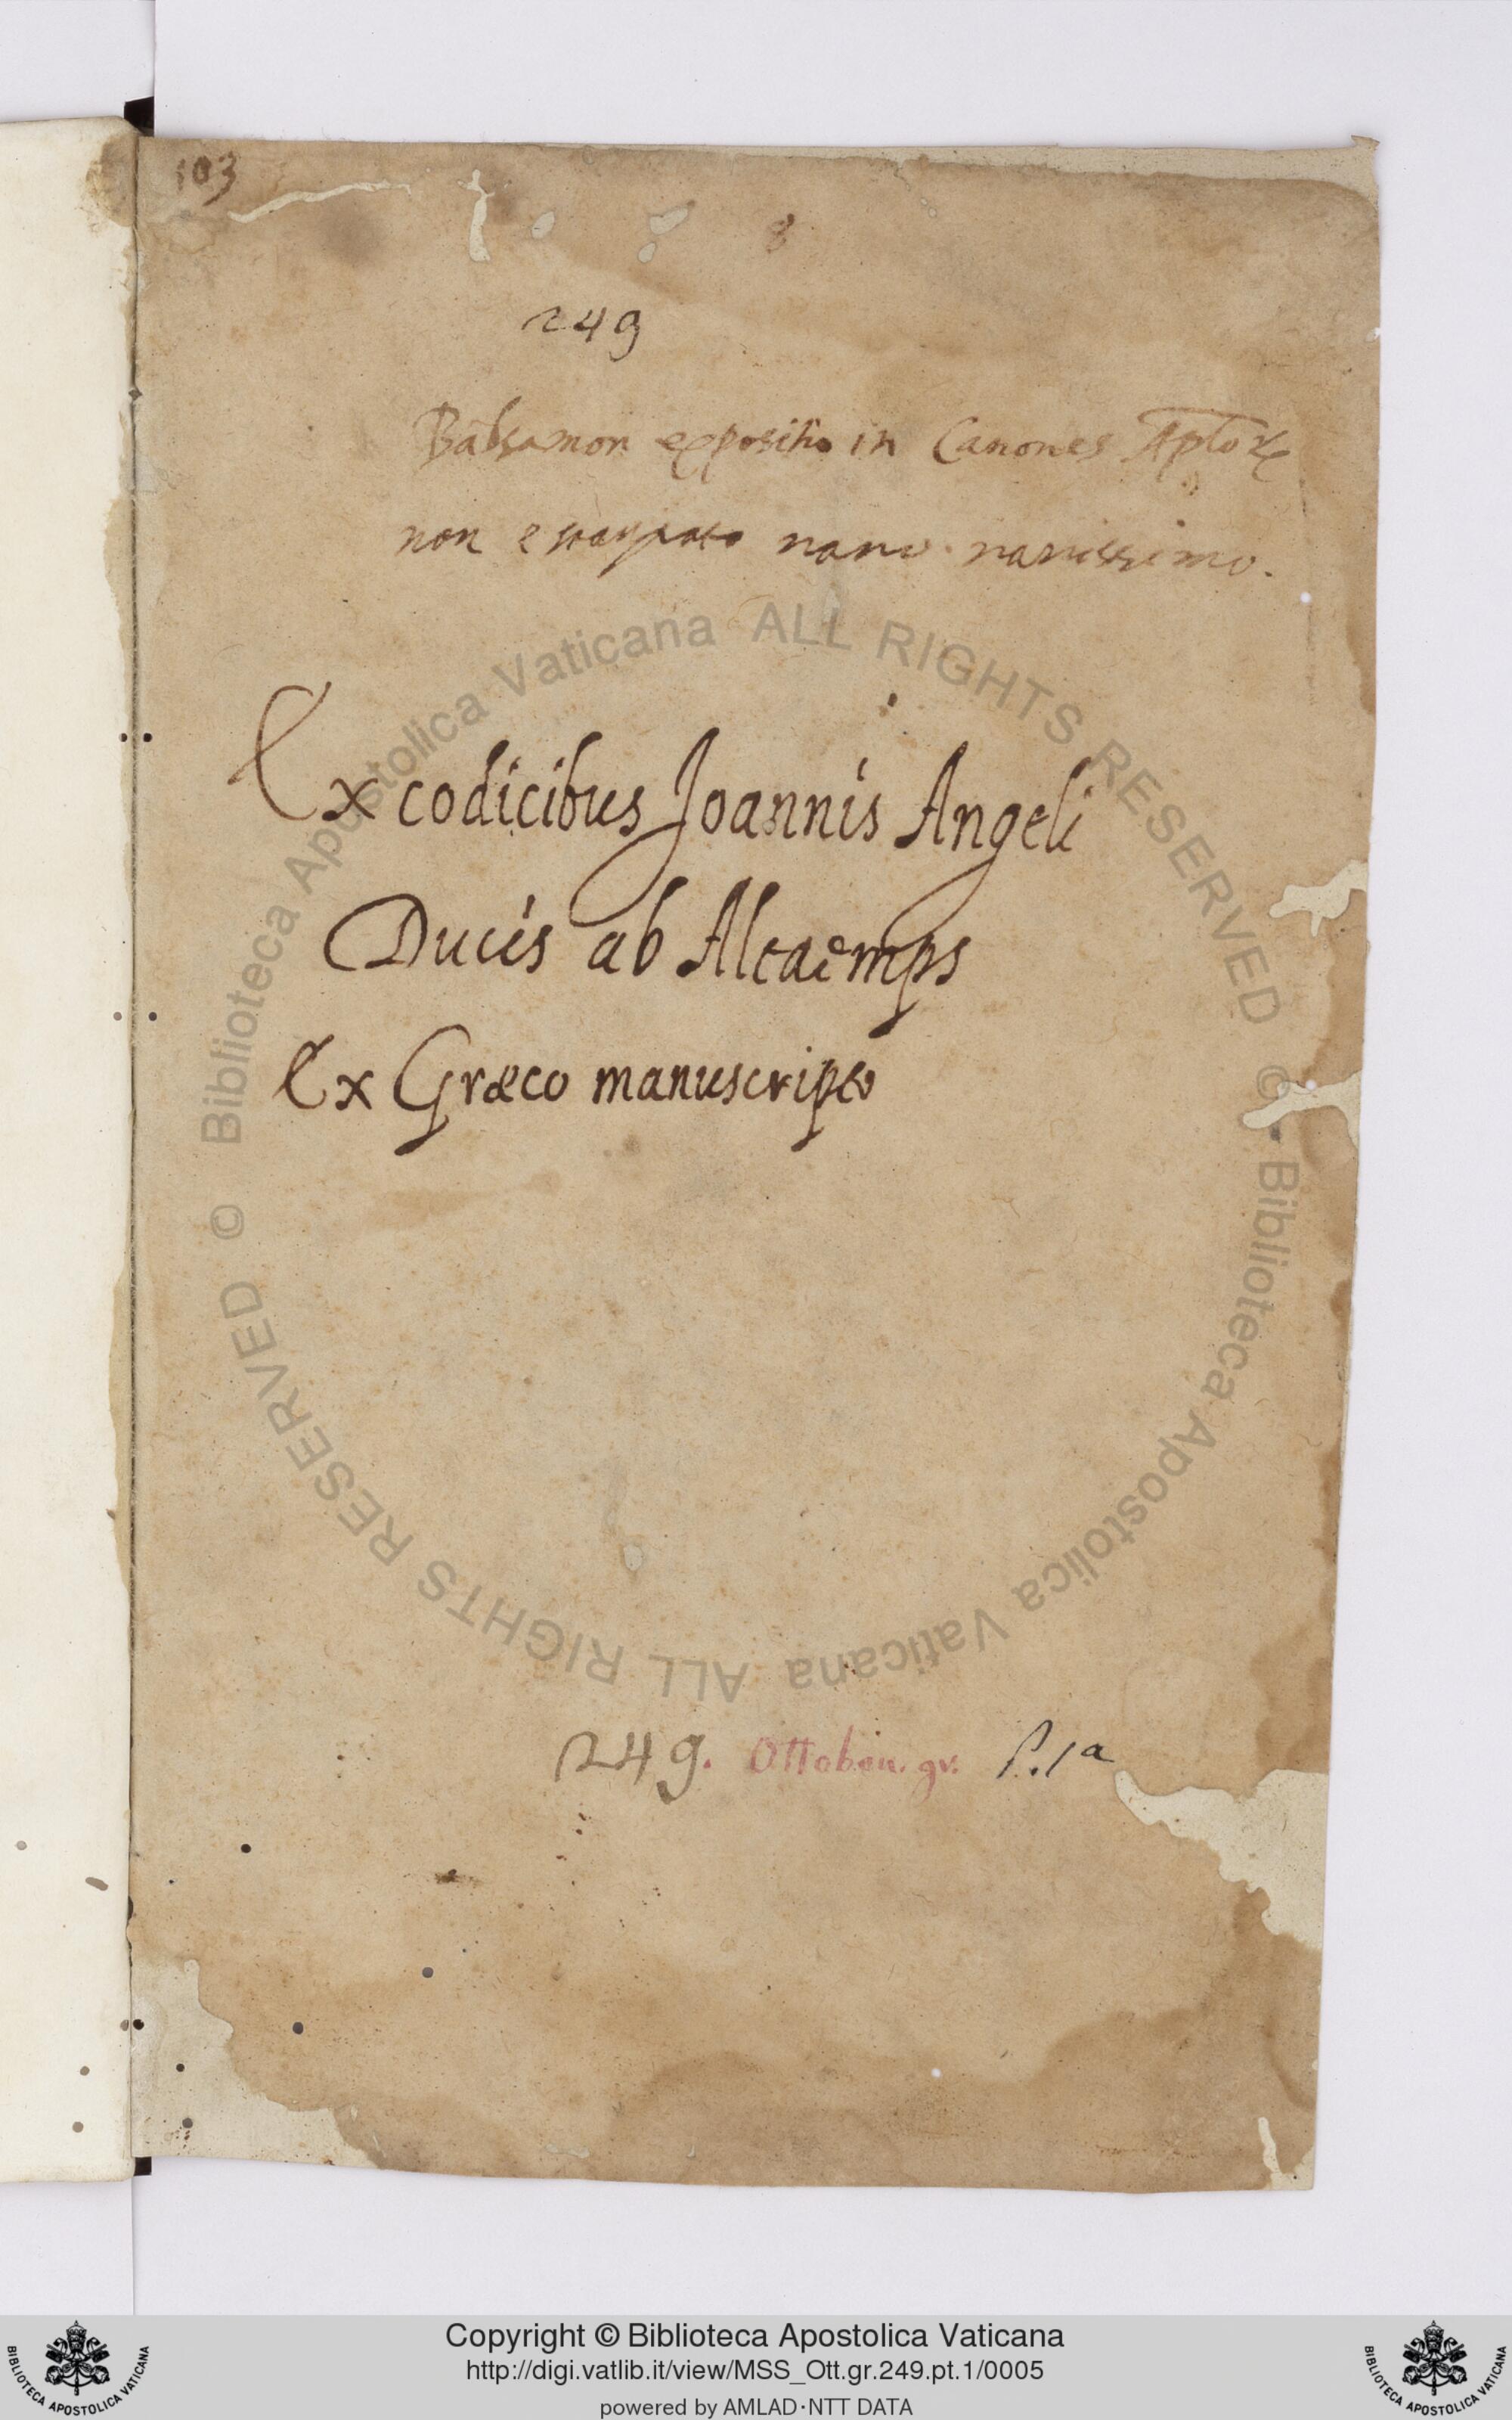 103
8
249
Balsamon expositio in Canones Aplorꝝ
non estampato raro. rarissimo.
Ex codicibus Joannis Angeli
Ducis ab Altaemps
Ex Græco manuscripto
249. Ottobon. gr. P. 1ª
© Biblioteca Apostolica Vaticana ALL RIGHTS RESERVED
© Biblioteca Apostolica Vaticana ALL RIGHTS RESERVED
Copyright © Biblioteca Apostolica Vaticana
http://digi.vatlib.it/view/MSS_Ott.gr.249.pt.1/0005
powered by AMLAD·NTT DATA
BIBLIOTECA APOSTOLICA VATICANA
BIBLIOTECA APOSTOLICA VATICANA